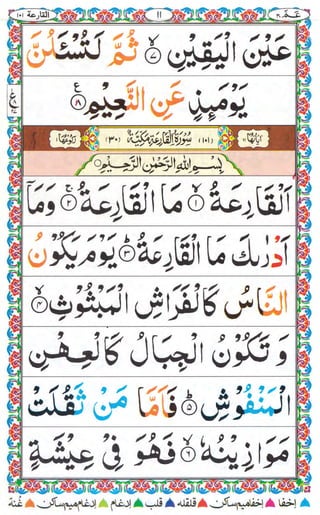 القارعة ١٠١ ١١ عَمّ ٣٠
عَيْنَ الْيَقِيْنِ ۙ‏﴿۷﴾ ثُمَّ لَتُسْـَٔلُنَّ
يَوْمَىِٕذٍ عَنِ النَّعِيْمِ ﴿۸﴾
اٰيَاتُهَا ١١ (١٠١) سُوْرَةُ الْقَارِعَةِ مَكِّيَّةٌ (٣٠) رُكُوْعُهَا ١
بِسْمِ اللّٰهِ الرَّحْمٰنِ الرَّحِيْمِ
اَلْقَارِعَةُ ۙ‏﴿۱﴾ مَا الْقَارِعَةُ ۚ‏﴿۲﴾ وَمَاۤ
اَدْرٰىكَ مَا الْقَارِعَةُ ؕ‏﴿۳﴾ يَوْمَ يَكُوْنُ
النَّاسُ كَالْفَرَاشِ الْمَبْثُوْثِ ۙ‏﴿۴﴾
وَ تَكُوْنُ الْجِبَالُ كَالْعِهْنِ
الْمَنْفُوْشِ ؕ‏﴿۵﴾ فَاَمَّا مَنْ ثَقُلَتْ
مَوَازِيْنُهٗ ۙ‏﴿۶﴾ فَهُوَ فِيْ عِيْشَةٍ
اخفا اخفا میم ساکن قلقله قلب ادغام ادغام میم ساکن غنة